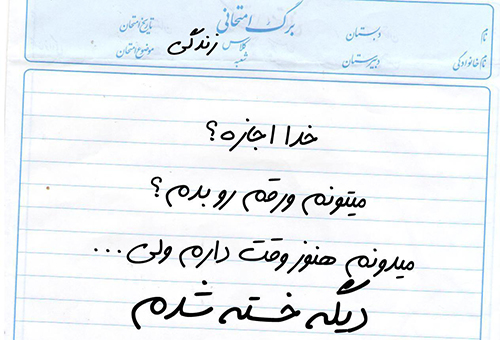 برگ امتحانی
نام دبستان کلاس زندگی تاریخ امتحان
نام خانوادگی دبیرستان شعبه موضوع امتحان
خدا اجازه؟
میتونم ورقم رو بدم؟
میدونم هنوز وقت دارم ولی...
دیگه خسته شدم